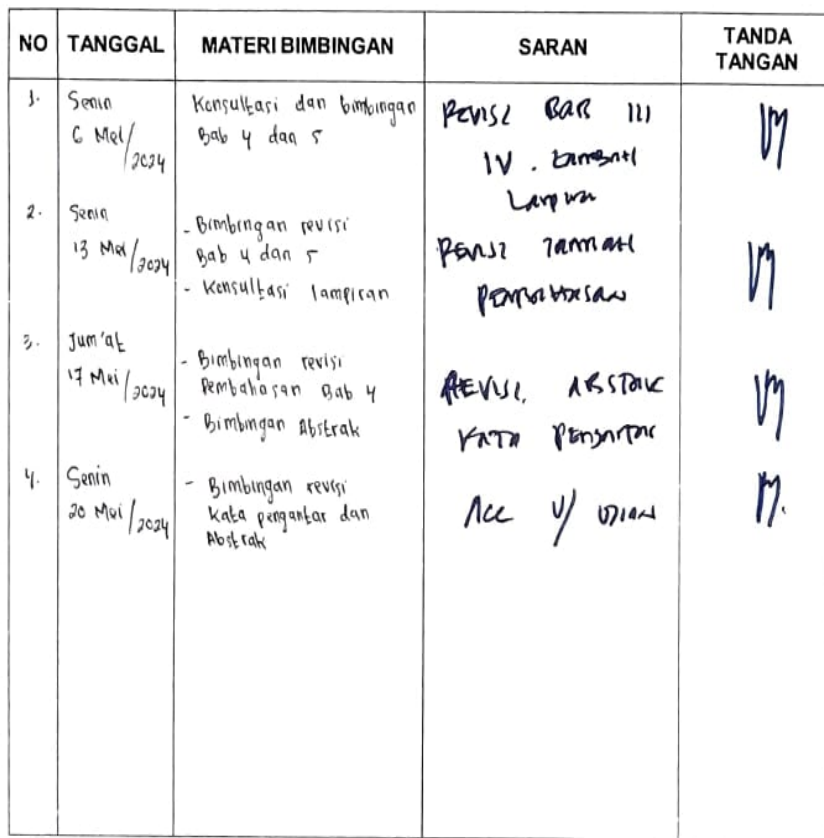 NO TANGGAL MATERI BIMBINGAN SARAN TANDA TANGAN
1.
Senin
6 Mei/2024
Konsultasi dan bimbingan
Bab 4 dan 5
REVISI BAB III
IV. TAMBAH
2.
Senin
13 Mei/2024
- Bimbingan revisi
Bab 4 dan 5
- Konsultasi lampiran
REVISI TAMBAH
PEMBAHASAN
3.
Jum'at
17 Mei/2024
- Bimbingan revisi
Pembahasan Bab 4
- Bimbingan Abstrak
REVISI. ABSTRAK
KATA PENGANTAR
4.
Senin
20 Mei/2024
- Bimbingan revisi
Kata pengantar dan
Abstrak
ACC U/ UJIAN